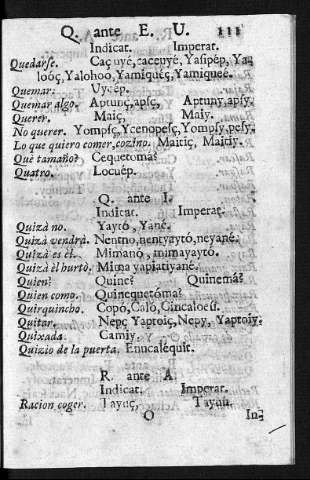 Q. ante E. U. 111
Indicat. Imperat.
Quedarse. Caçuyé, caceuyé, Yasipép, Ya-
loóç, Yalohoo, Yamiquéç, Yamiqueé.
Quemar. Uycép.
Quemar algo. Aptunç, apsç, Aptuny, apsy.
Querer. Maiç, Maiy.
No querer. Yompsç, Ycenopesç, Yompsy, pesy.
Lo que quiero comer, cozino. Maitiç, Maitiy.
Què tamaño? Cequetomá?
Quatro. Locuép.
Q. ante I.
Indicat. Imperat.
Quizà no. Yaytó, Yané.
Quizà vendrà. Nentno, nentyaytó, neyané.
Quizà es èl. Mimanó, mimayaytó.
Quizà èl hurtò. Mima yapiatiyané.
Quien? Quine? Quinemá?
Quien como. Quinequetóma?
Quirquincho. Copó, Caló, Cincaloeís.
Quitar. Nepç Yaptoiç, Nepy, Yaptoiy.
Quixada. Camiy.
Quizio de la puerta. Enucalèquit.
R. ante A.
Indicat. Imperat.
Racion coger. Tayuç, Tayusi.
O In-